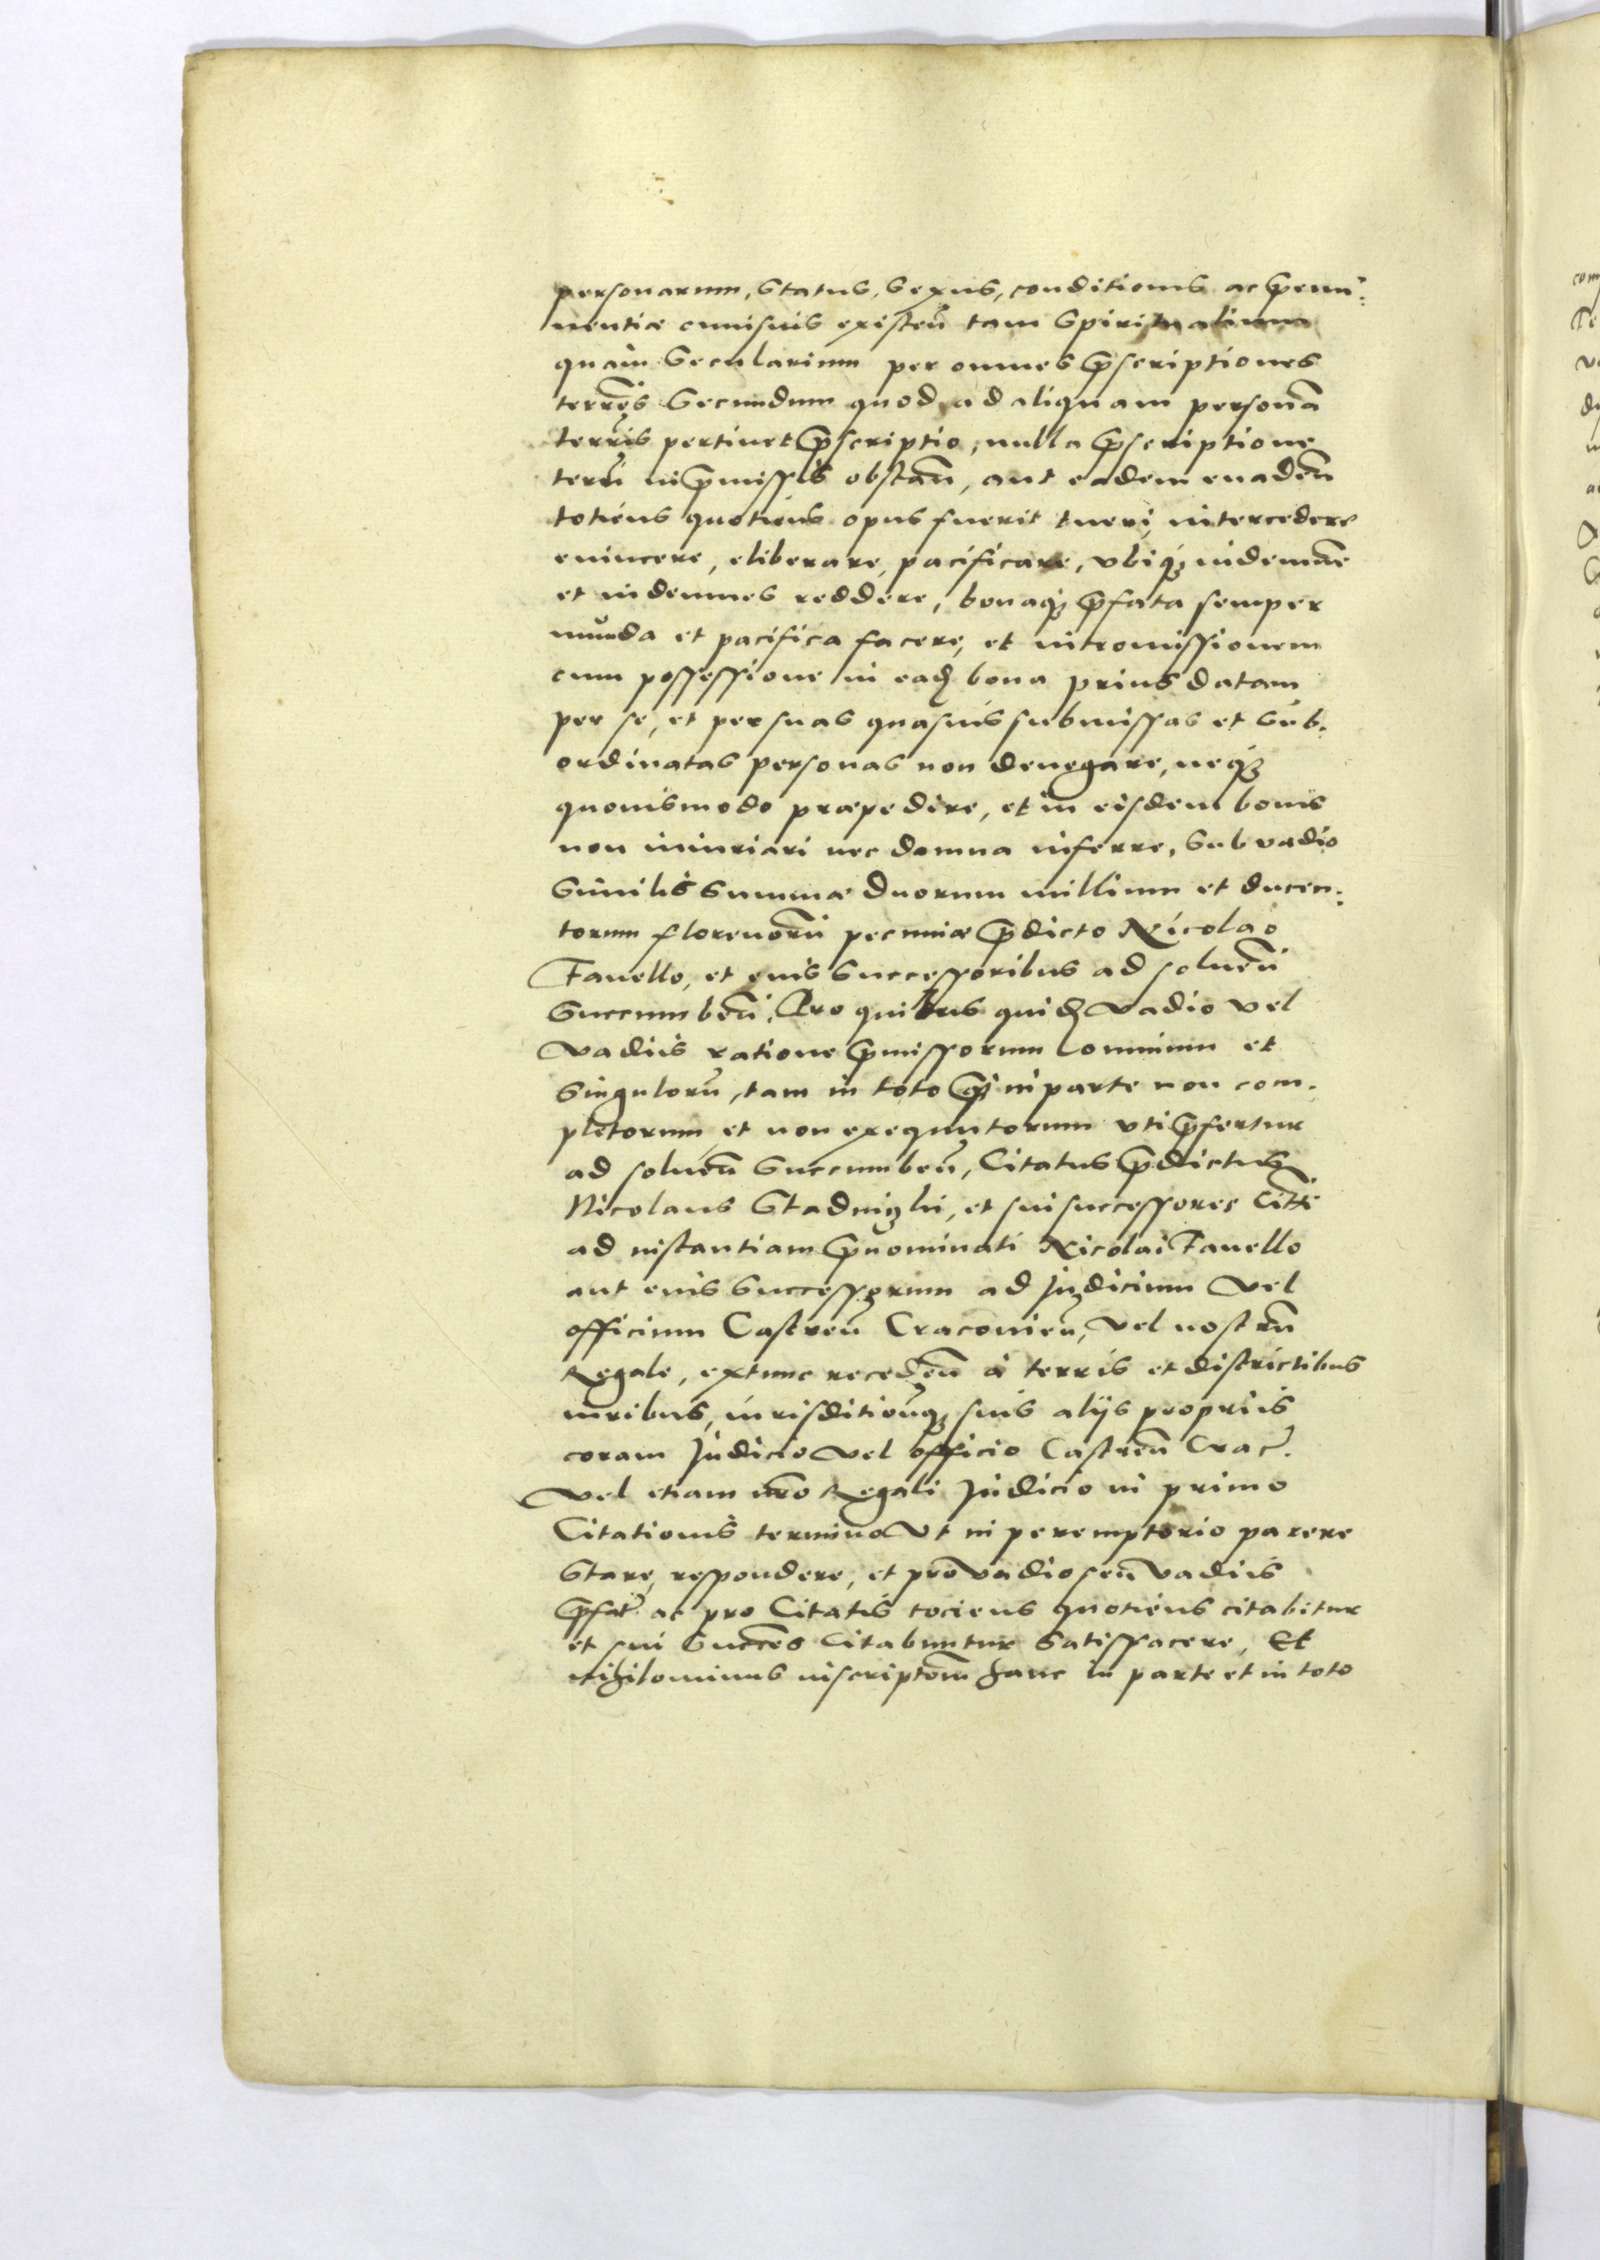 personarum, Status, Sexus, conditionis ac p̄emi-
nentiæ cuiusuis existeñ tam Spiritualium
quam Secularium per omnes p̄scriptiones
terrēs Secundum quod ad aliquam personā
terrīs pertinet p̄scriptio, nulla p̄scriptione
terrī in p̄missis obstañ, aut eadem euadeñ
totiens quotiens opus fuerit tueri, intercedere
euincere, eliberare, pacificare, vbiq; indemnē
et indemnes reddere, bonaq; p̄fata semper
munda et pacifica facere, et intromissionem
cum possessione in eadē bona prius datam
per se, et per suas quasuis submissas et sub-
ordinatas personas non denegare, neq;
quouismodo præpedire, et in eisdem bonis
non iniuriari nec damna inferre, Sub vadio
Similis Summæ duorum millium et ducen-
torum florenorū pecuniæ p̄dicto Nicolao
Fauello, et eius Successoribus ad solueñ
Succumbeñ, Pro quibus quidē vadio vel
vadiis ratione p̄missorum omnium et
Singulorū, tam in toto q̄ in parte non com-
pletorum et non exequutorum vti p̄fertur
ad solueñ Succumbeñ, Citatus p̄dictus
Nicolaus Stadniczki, et sui successores Citti
ad instantiam p̄nominati Nicolai Fauello
aut eius Successorum ad Judicium vel
officium Castreñ Cracouieñ, vel nostrū
Regale, extunc recedeñ à terris et districtibus
iuribus, iurisditioniq; suis aliis propriis
coram Judicio vel officio Castreñ Crac.
vel etiam nr̄o Regali Judicio in primo
Citationis termino vt in peremptorio parere
Stare, respondere, et pro vadio seu vadiis
p̄fat. ac pro Citatis tociens quotiens citabitur
et sui Succēs Citabuntur Satisfacere, Et
nihilominus inscriptōm hanc in parte et in toto